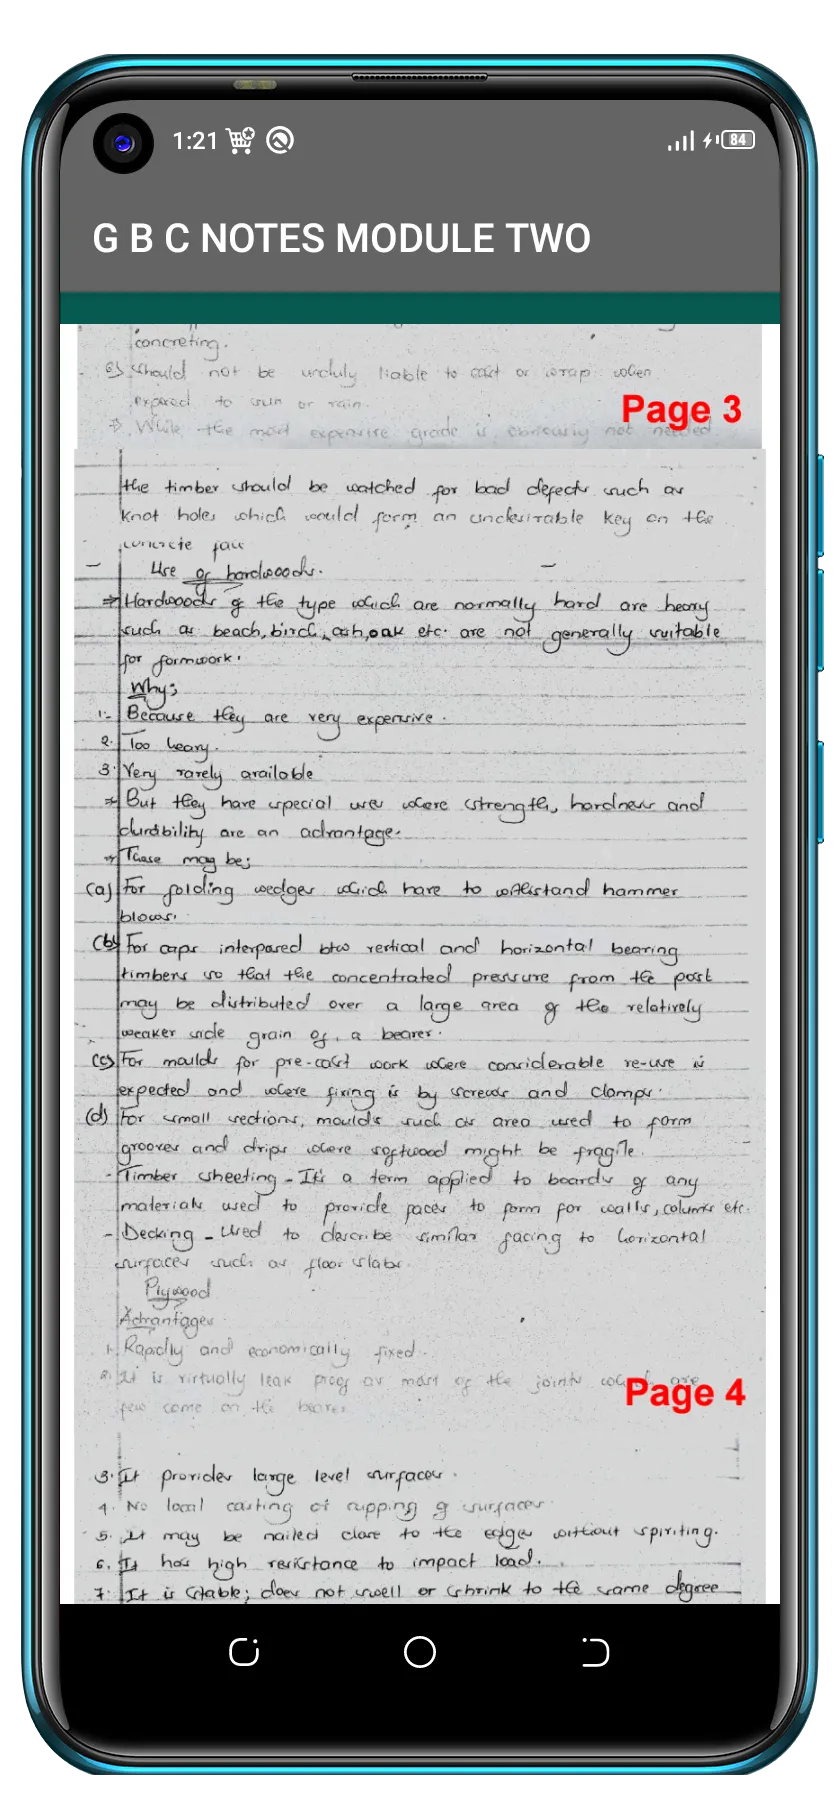 1:21
84
G B C NOTES MODULE TWO
concreting.
6) Should not be unduly liable to cast or wrap when
expored to sun or rain.
Page 3
⇒ While the most expensive grade is obviously not needed
the timber should be watched for bad defects such as
knot holes which would form an undesirable key on the
concrete face
Use of hardwoods.
⇒ Hardwoods of the type which are normally hard are heavy
such as beach, birch, ash, oak etc. are not generally suitable
for formwork.
Why;
1- Because they are very expensive.
2. Too heavy.
3. Very rarely available
⇒ But they have special uses where strength, hardness and
durability are an advantage.
⇒ These may be;
(a) For folding wedges which have to withstand hammer
blows.
(b) For caps interposed btw vertical and horizontal bearing
timbers so that the concentrated pressure from the post
may be distributed over a large area of the relatively
weaker side grain of a bearer.
(c) For moulds for pre-cast work where considerable re-use is
expected and where fixing is by screws and clamps.
(d) For small sections, moulds such as area used to form
grooves and drips where softwood might be fragile.
- Timber sheeting - It's a term applied to boards of any
materials used to provide faces to form for walls, columns etc.
- Decking - Used to describe similar facing to horizontal
surfaces such as floor slabs.
Plywood
Advantages
1. Rapidly and economically fixed.
2. It is virtually leak proof as most of the joints which are
few come on the bearer
Page 4
3. It provides large level surfaces.
4. No local casting or cupping of surfaces.
5. It may be nailed close to the edges without spiriting.
6. It has high resistance to impact load.
7. It is stable; does not swell or shrink to the same degree